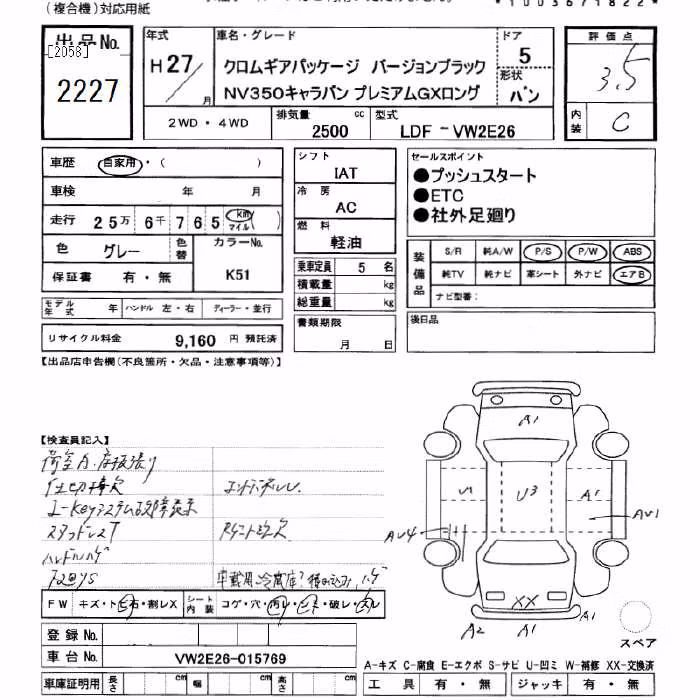 (複合機)対応用紙
*1003671822*
出品No.
[2058]
2227
年式
H27/
月
車名・グレード
クロムギアパッケージ バージョンブラック
NV350キャラバン プレミアムGXロング
ドア
5
形状
バン
評価点
3.5
内装
C
2WD・4WD
排気量
2500
cc
型式
LDF-VW2E26
車歴
自家用・( )
車検
年 月
走行
25万 6千 765
km
マイル
( )
色
グレー
色替
カラーNo.
K51
保証書
有・無
モデル年式
年
ハンドル 左・右
ディーラー・並行
リサイクル料金
9,160 円 預託済
シフト
IAT
冷房
AC
燃料
軽油
乗車定員 5 名
積載量 kg
総重量 kg
書類期限
月 日
セールスポイント
●プッシュスタート
●ETC
●社外足廻り
装備品
S/R 純A/W P/S P/W ABS
純TV 純ナビ 革シート 外ナビ エアB
ナビ型番:
後日品
【出品店申告欄(不良箇所・欠品・注意事項等)】
【検査員記入】
荷室内、床板張り
A1
U3
A1
AU4
AU1
XX
A2
A1
A1
スペア
FW
キズ・トビ石・割レX
シート内装
コゲ・穴・汚レ・シミ・破レ・スレ
登録No.
車台No.
VW2E26-015769
車庫証明用
長さ
cm
幅
cm
高さ
cm
A-キズ C-腐食 E-エクボ S-サビ U-凹ミ W-補修 XX-交換済
工具
有・無
ジャッキ
有・無